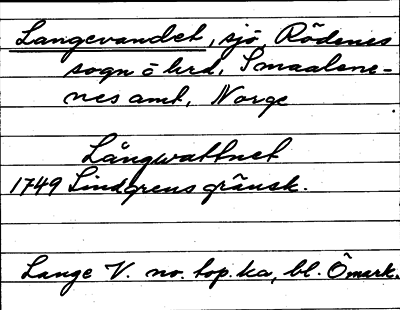 Langevandet, sjö Rödenes
sogn o hrd, Smaalene-
nes amt, Norge
Långwattnet
1749 Lindgrens gränsk.
Lange V. no. top. ka, bl. Ömark.